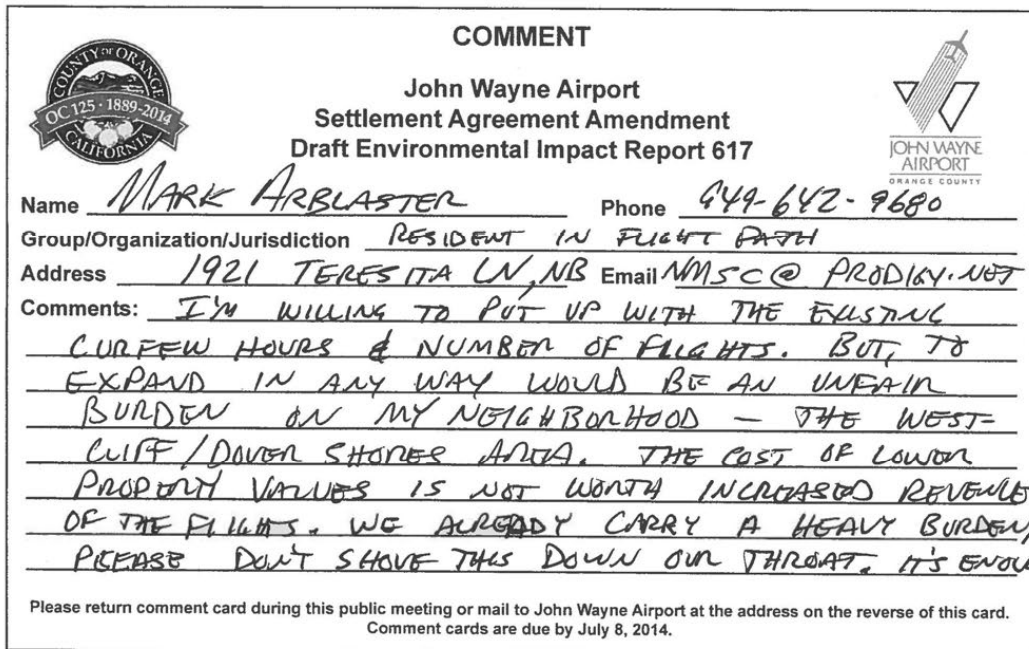 COMMENT
COUNTY OF ORANGE
OC 125 · 1889-2014
CALIFORNIA
John Wayne Airport
Settlement Agreement Amendment
Draft Environmental Impact Report 617
JOHN WAYNE
AIRPORT
ORANGE COUNTY
Name MARK ARBLASTER Phone 949-642-9680
Group/Organization/Jurisdiction RESIDENT IN FLIGHT PATH
Address 1921 TERESITA LN, NB Email NMSC@PRODIGY.NET
Comments: I'M WILLING TO PUT UP WITH THE EXISTING
CURFEW HOURS & NUMBER OF FLIGHTS. BUT, TO
EXPAND IN ANY WAY WOULD BE AN UNFAIR
BURDEN ON MY NEIGHBORHOOD — THE WEST-
CLIFF/DOVER SHORES AREA. THE COST OF LOWER
PROPERTY VALUES IS NOT WORTH INCREASED REVENUE
OF THE FLIGHTS. WE ALREADY CARRY A HEAVY BURDEN,
PLEASE DON'T SHOVE THIS DOWN OUR THROAT. IT'S ENOU
Please return comment card during this public meeting or mail to John Wayne Airport at the address on the reverse of this card.
Comment cards are due by July 8, 2014.